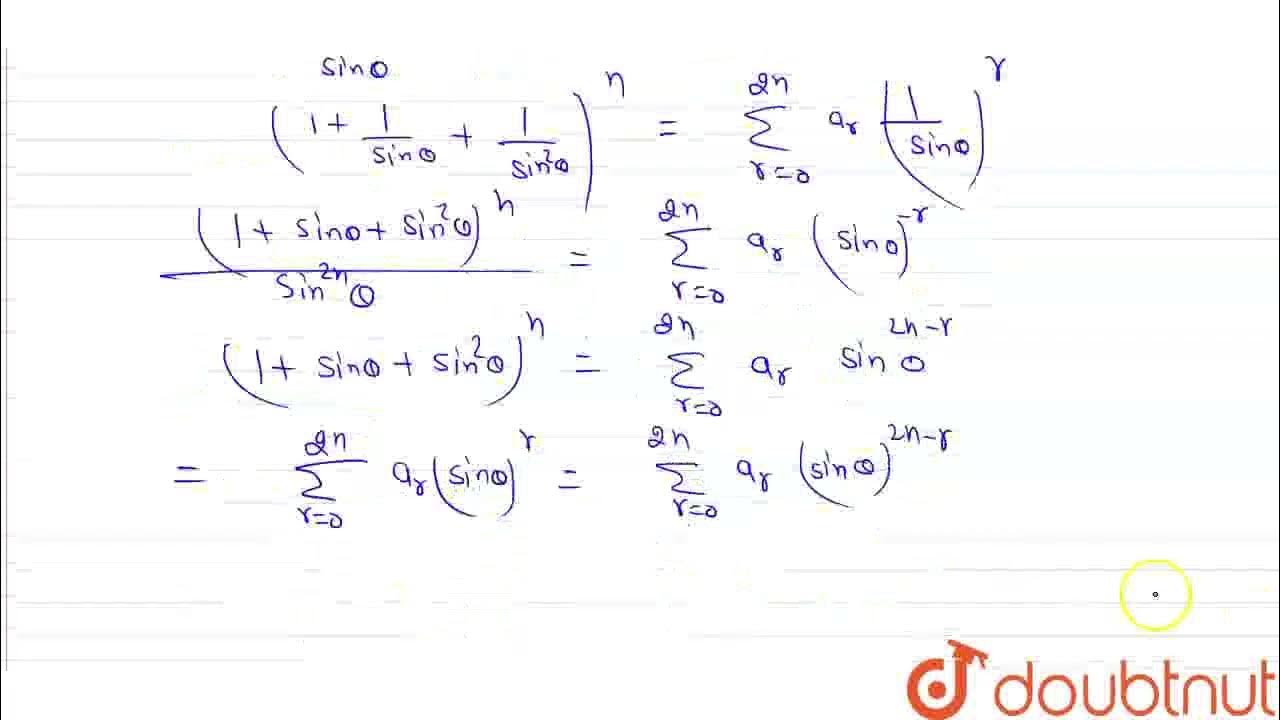 sinθ
(1 + 1/sinθ + 1/sin²θ)ⁿ = Σ_{r=0}^{2n} aᵣ (1/sinθ)ʳ
(1 + sinθ + sin²θ)ⁿ / sin²ⁿθ = Σ_{r=0}^{2n} aᵣ (sinθ)⁻ʳ
(1 + sinθ + sin²θ)ⁿ = Σ_{r=0}^{2n} aᵣ sinθ^{2n-r}
= Σ_{r=0}^{2n} aᵣ (sinθ)ʳ = Σ_{r=0}^{2n} aᵣ (sinθ)^{2n-r}
doubtnut